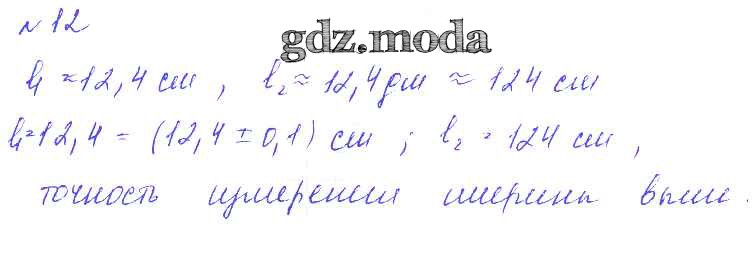 № 12
gdz.moda
l₁ ≈ 12,4 см , l₂ ≈ 12,4 дм ≈ 124 см
l₁ = 12,4 = (12,4 ± 0,1) см ; l₂ = 124 см ,
точность измерения ширины выше.